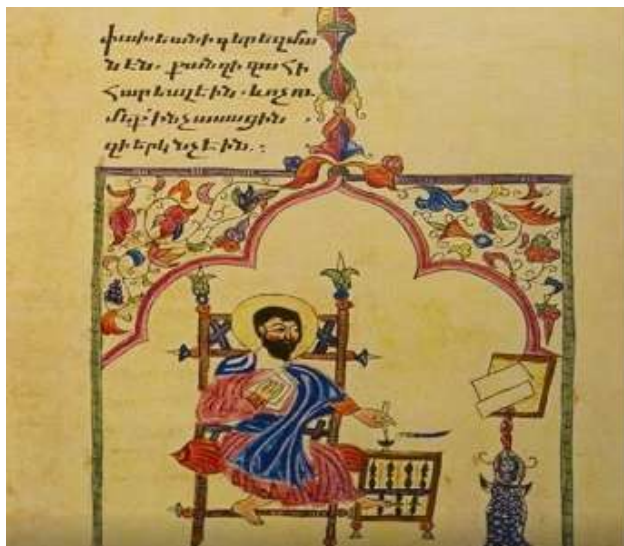 փախեան ի գերեզմա
նէն. քանզի զահի
հարեալ էին. և ոչ ու
մեք՝ ինչ ասացին.
զի երկնչէին.։